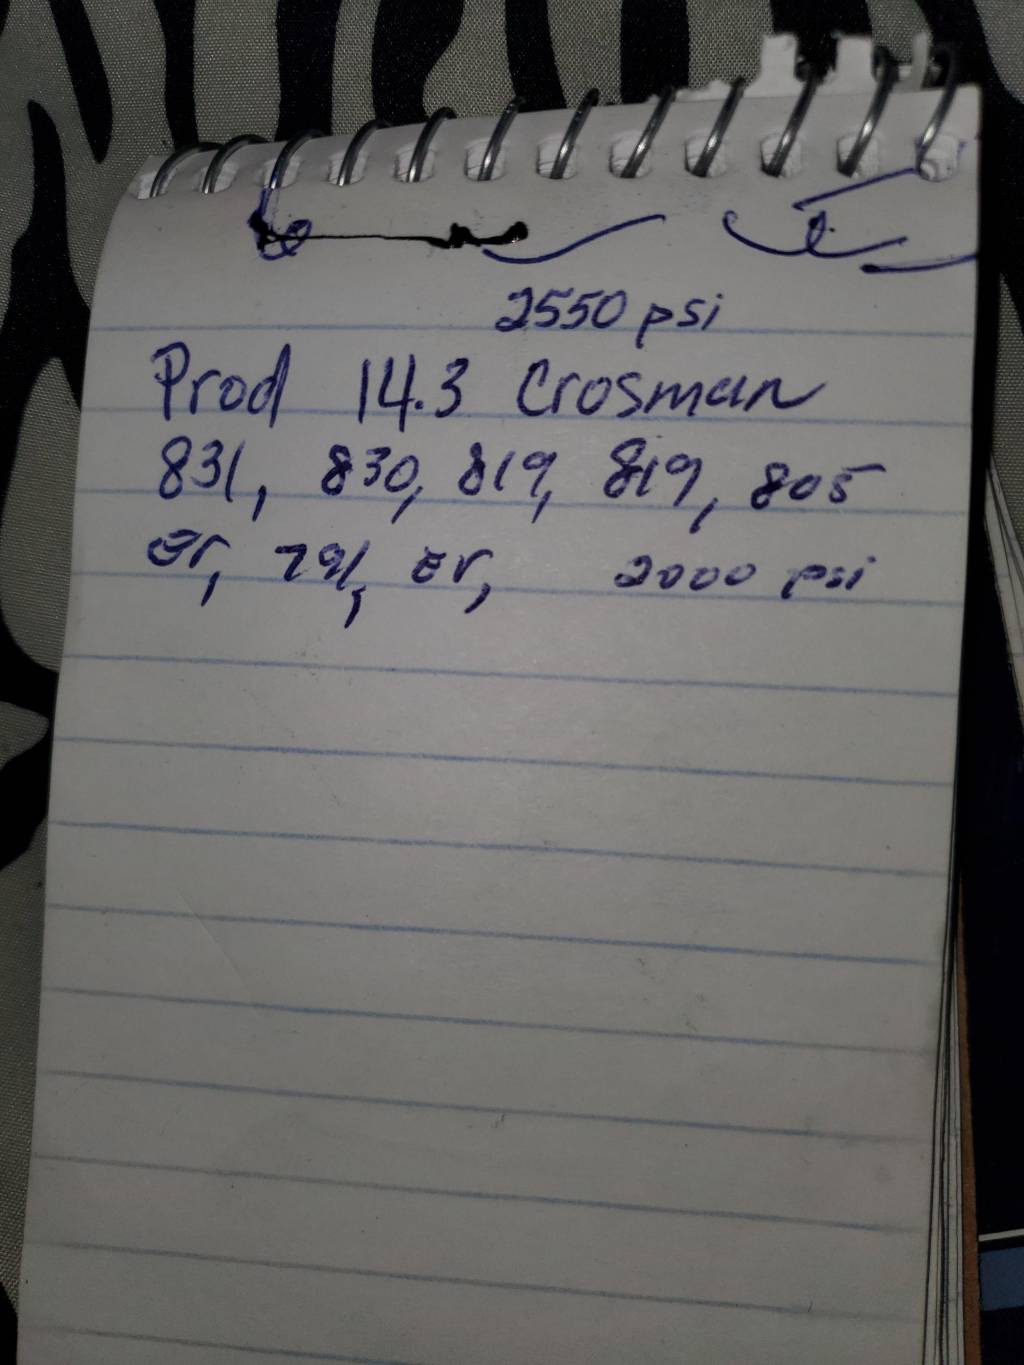 2550 psi
Prod 14.3 Crosman
831, 830, 819, 819, 805
Er, 791, Er, 2000 psi